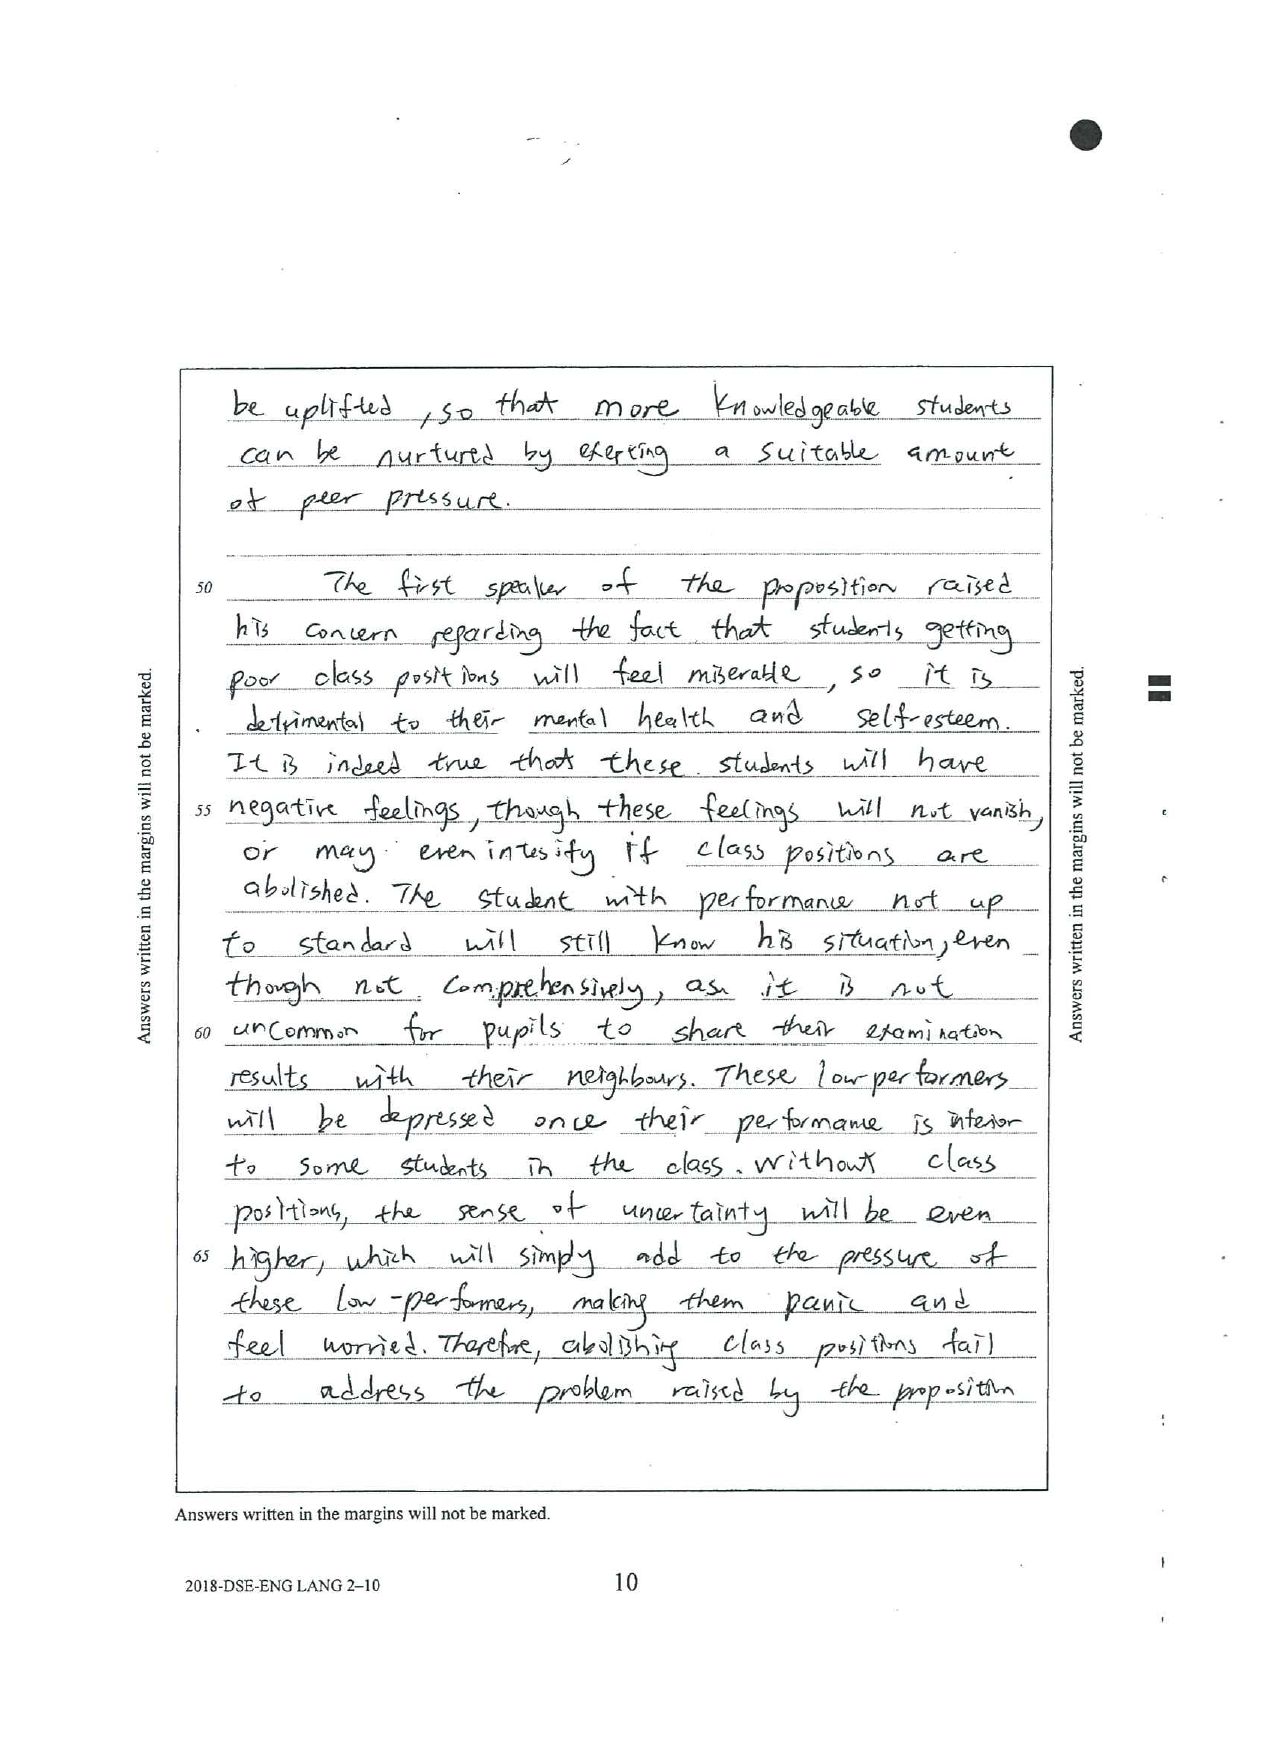 be uplifted, so that more knowledgeable students
can be nurtured by exerting a suitable amount
of peer pressure.
50 The first speaker of the proposition raised
his concern regarding the fact that students getting
poor class positions will feel miserable, so it is
detrimental to their mental health and self-esteem.
It is indeed true that these students will have
55 negative feelings, though these feelings will not vanish,
or may even intesify if class positions are
abolished. The student with performance not up
to standard will still know his situation, even
though not comprehensively, as it is not
60 uncommon for pupils to share their examination
results with their neighbours. These low-performers
will be depressed once their performance is inferior
to some students in the class. Without class
positions, the sense of uncertainty will be even
65 higher, which will simply add to the pressure of
these low-performers, making them panic and
feel worried. Therefore, abolishing class positions fail
to address the problem raised by the proposition
Answers written in the margins will not be marked.
Answers written in the margins will not be marked.
Answers written in the margins will not be marked.
2018-DSE-ENG LANG 2–10
10